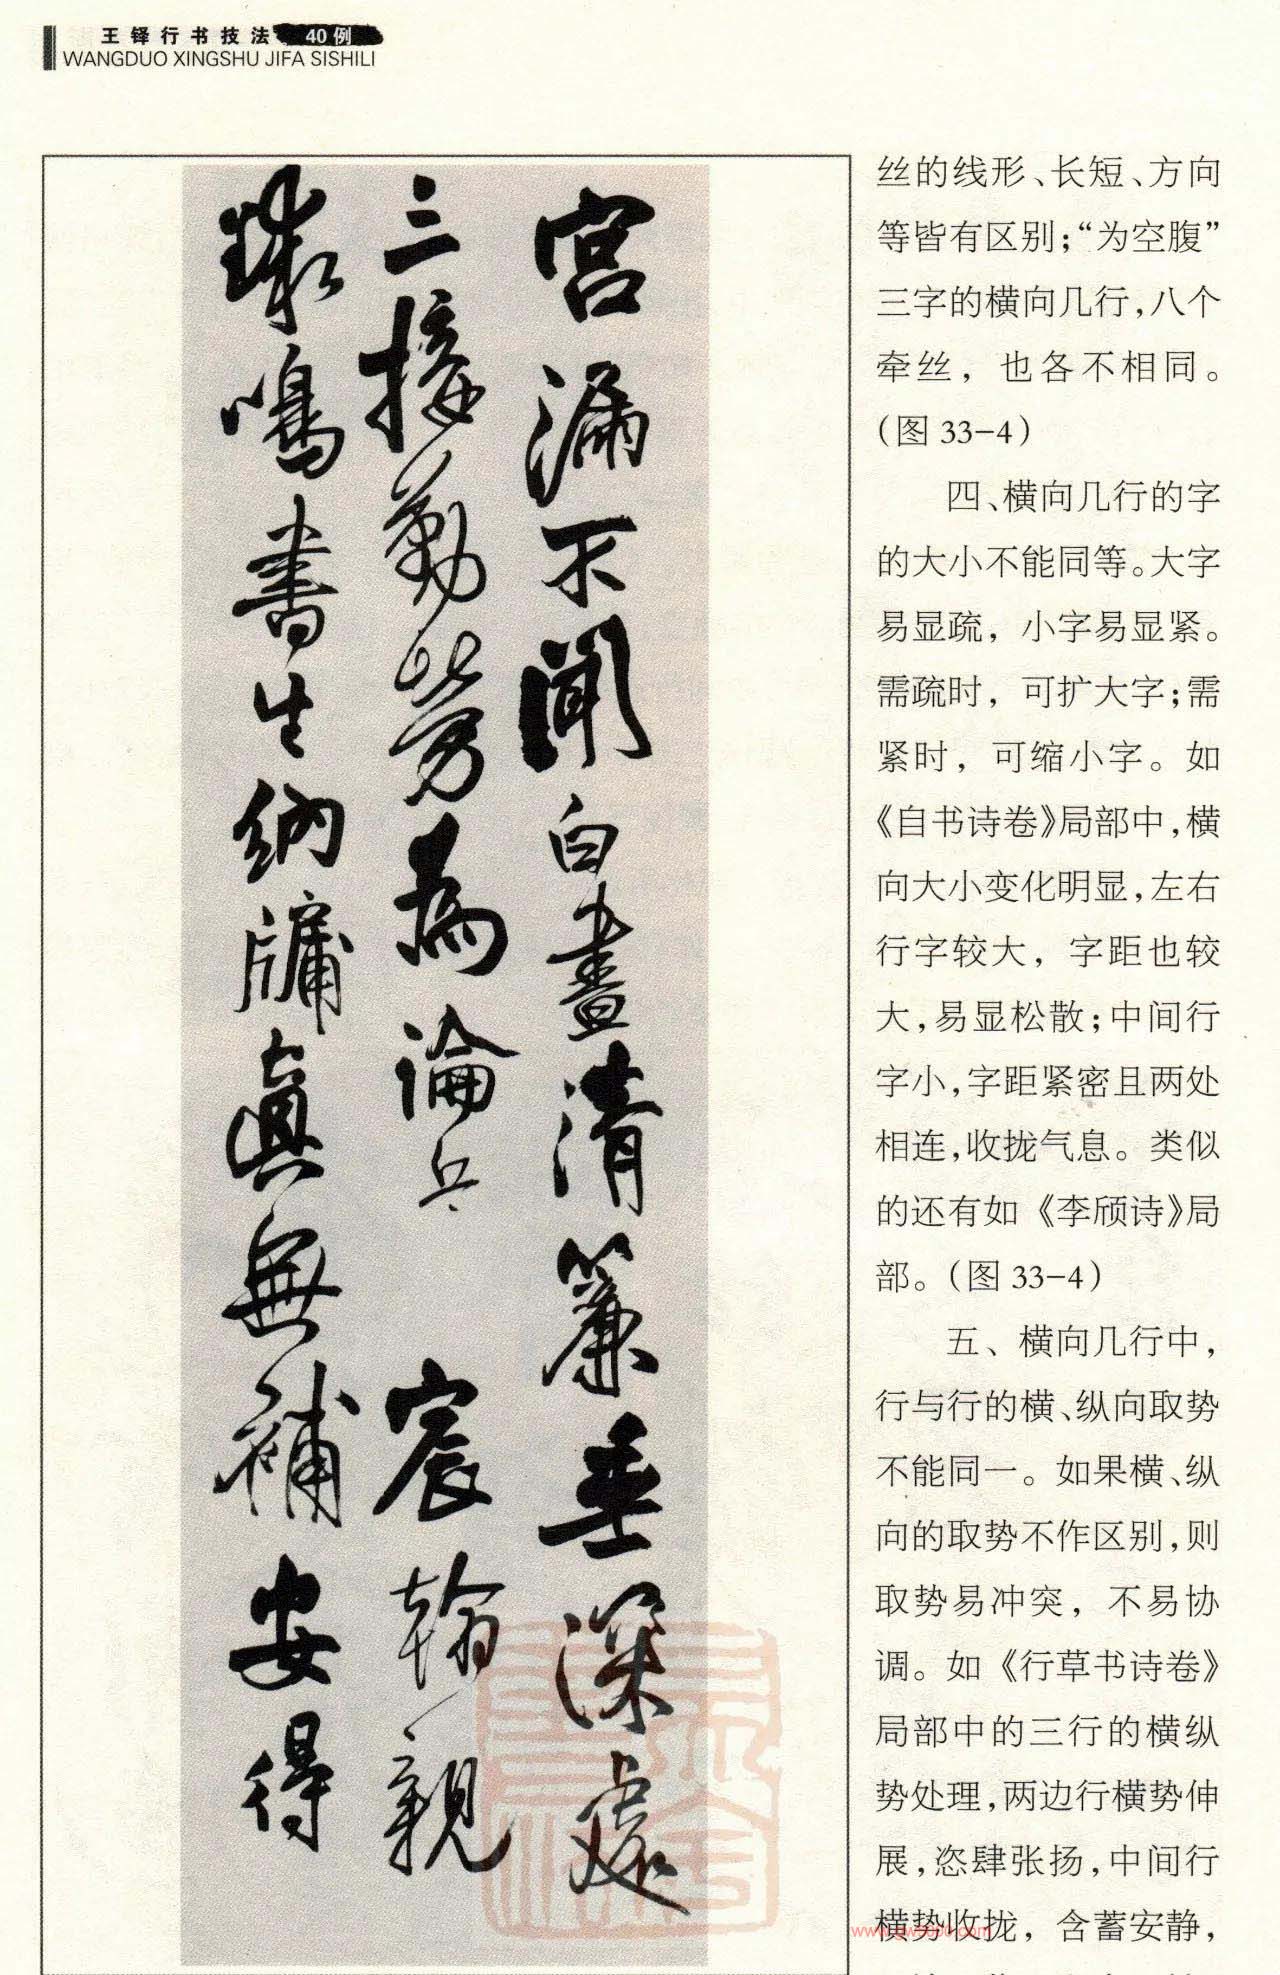 王铎行书技法 40例
WANGDUO XINGSHU JIFA SISHILI
宫漏不闻白晝清簾垂深處
三接勤勞為論兵宸翰親
鳴書生納牖真無補安得
丝的线形、长短、方向
等皆有区别；“为空腹”
三字的横向几行，八个
牵丝，也各不相同。
（图 33-4）
四、横向几行的字
的大小不能同等。大字
易显疏，小字易显紧。
需疏时，可扩大字；需
紧时，可缩小字。如
《自书诗卷》局部中，横
向大小变化明显，左右
行字较大，字距也较
大，易显松散；中间行
字小，字距紧密且两处
相连，收拢气息。类似
的还有如《李颀诗》局
部。（图 33-4）
五、横向几行中，
行与行的横、纵向取势
不能同一。如果横、纵
向的取势不作区别，则
取势易冲突，不易协
调。如《行草书诗卷》
局部中的三行的横纵
势处理，两边行横势伸
展，恣肆张扬，中间行
横势收拢，含蓄安静，